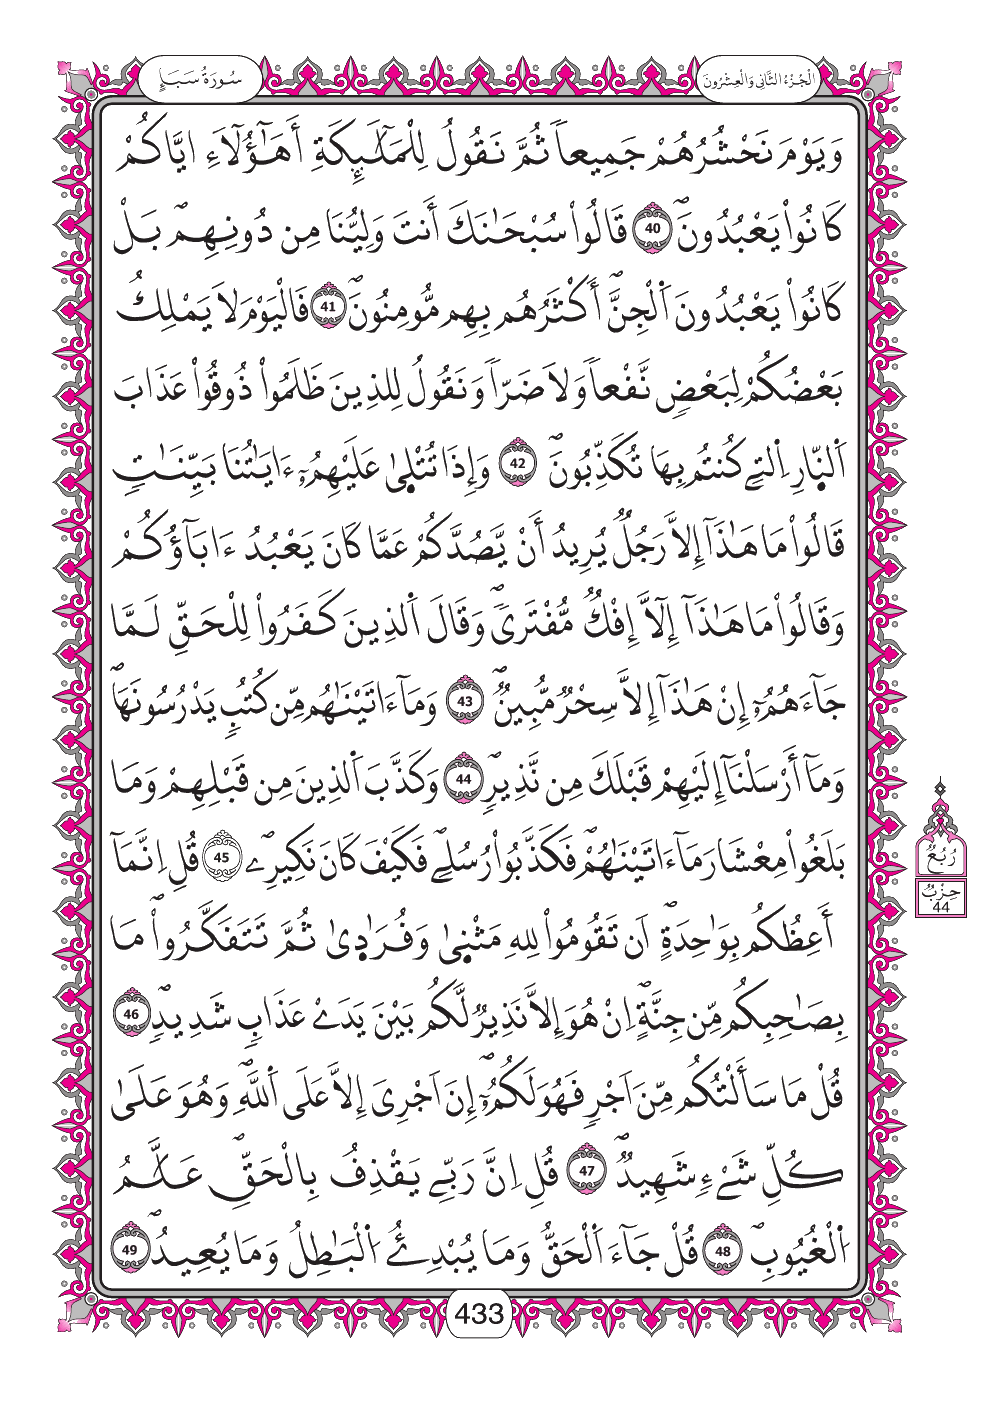 سُورَةُ سَبَإٍ
الْجُزْءُ الثَّانِي وَالْعِشْرُونَ
وَيَوْمَ نَحْشُرُهُمْ جَمِيعاٗ ثُمَّ نَقُولُ لِلْمَلَٰٓئِكَةِ أَهَٰٓؤُلَآءِ ايَّاكُمْ
كَانُواْ يَعْبُدُونَۖ 40 قَالُواْ سُبْحَٰنَكَ أَنتَ وَلِيُّنَا مِن دُونِهِمۖ بَلْ
كَانُواْ يَعْبُدُونَ اَ۬لْجِنَّۖ أَكْثَرُهُم بِهِم مُّومِنُونَۖ 41 فَالْيَوْمَ لَا يَمْلِكُ
بَعْضُكُمْ لِبَعْضٖ نَّفْعاٗ وَلَا ضَرّاٗ وَنَقُولُ لِلذِينَ ظَلَمُواْ ذُوقُواْ عَذَابَ
اَ۬لنّ۪ارِ اِ۬لتِے كُنتُم بِهَا تُكَذِّبُونَۖ 42 وَإِذَا تُتْل۪ىٰ عَلَيْهِمُۥٓ ءَايَٰتُنَا بَيِّنَٰتٖ
قَالُواْ مَا هَٰذَآ إِلَّا رَجُلٞ يُرِيدُ أَنْ يَّصُدَّكُمْ عَمَّا كَانَ يَعْبُدُ ءَابَآؤُكُمْ
وَقَالُواْ مَا هَٰذَآ إِلَّآ إِفْكٞ مُّفْتَرىٗۖ وَقَالَ اَ۬لذِينَ كَفَرُواْ لِلْحَقِّ لَمَّا
جَآءَهُمُۥٓ إِنْ هَٰذَآ إِلَّا سِحْرٞ مُّبِينٞۖ 43 وَمَآ ءَاتَيْنَٰهُم مِّن كُتُبٖ يَدْرُسُونَهَاۖ
وَمَآ أَرْسَلْنَآ إِلَيْهِمْ قَبْلَكَ مِن نَّذِيرٖۖ 44 وَكَذَّبَ اَ۬لذِينَ مِن قَبْلِهِمْ وَمَا
بَلَغُواْ مِعْشَارَ مَآ ءَاتَيْنَٰهُمْۖ فَكَذَّبُواْ رُسُلِےۖ فَكَيْفَ كَانَ نَكِيرِۦےۖ 45 قُلِ اِنَّمَآ
أَعِظُكُم بِوَٰحِدَةٍ اَن تَقُومُواْ لِلهِ مَثْن۪ىٰ وَفُرَٰد۪ىٰ ثُمَّ تَتَفَكَّرُواْۖ مَا
بِصَٰحِبِكُم مِّن جِنَّةٍۖ اِنْ هُوَ إِلَّا نَذِيرٞ لَّكُم بَيْنَ يَدَےْ عَذَابٖ شَدِيدٖۖ 46
قُلْ مَا سَأَلْتُكُم مِّنَ اَجْرٖ فَهُوَ لَكُمُۥٓۖ إِنَ اَجْرِيَ إِلَّا عَلَى اَ۬للَّهِۖ وَهُوَ عَلَىٰ
كُلِّ شَےْءٖ شَهِيدٞۖ 47 قُلِ اِنَّ رَبِّے يَقْذِفُ بِالْحَقِّۖ عَلَّٰمُ
اُ۬لْغُيُوبِۖ 48 قُلْ جَآءَ اَ۬لْحَقُّ وَمَا يُبْدِئُ اُ۬لْبَٰطِلُ وَمَا يُعِيدُۖ 49
رُبُعٌ
حِزْبٌ
44
433